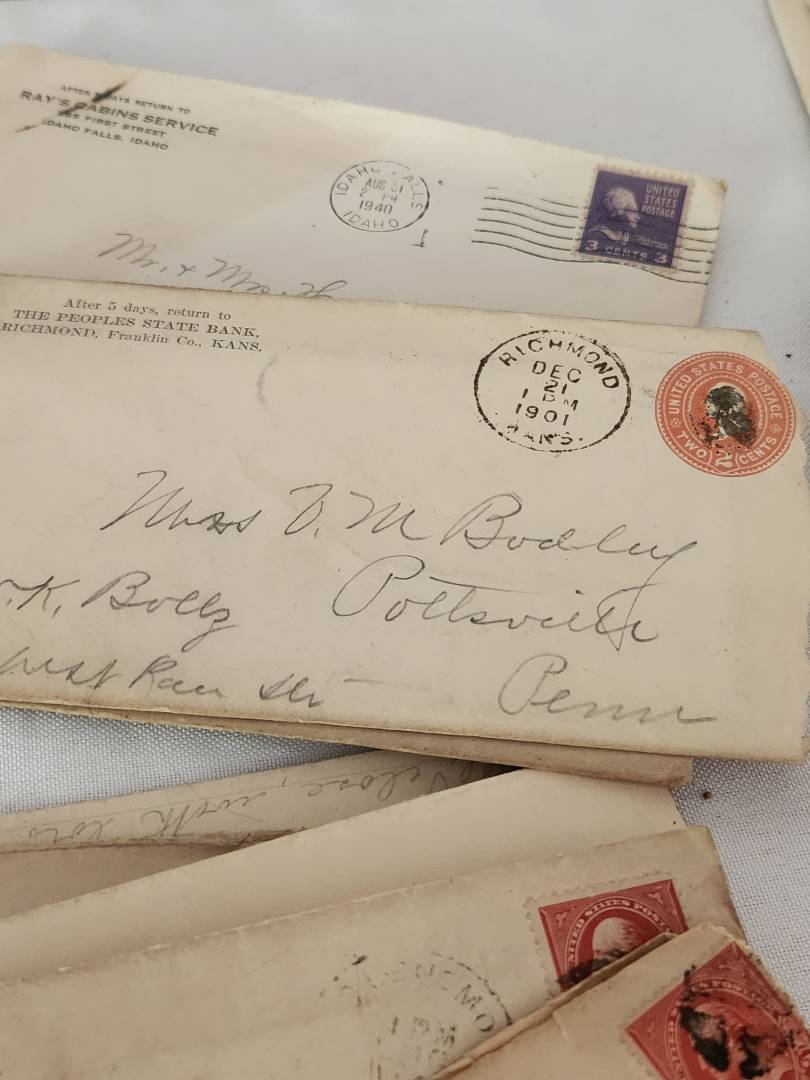 AFTER 5 DAYS RETURN TO
RAY'S CABINS SERVICE
FIRST STREET
IDAHO FALLS, IDAHO
IDAHO FALLS
AUG 31
2 PM
1940
IDAHO
1
UNITED
STATES
POSTAGE
3 CENTS 3
Mr. & Mrs.
After 5 days, return to
THE PEOPLES STATE BANK,
RICHMOND, Franklin Co., KANS.
RICHMOND
DEC
21
1 PM
1901
KANS.
UNITED STATES POSTAGE
TWO 2 CENTS
Miss V. M Bodley
.K. Boltz
Pottsville
West Race Str
Penn
with
UNITED STATES POSTA
1 PM
UNITED STATES POSTAGE